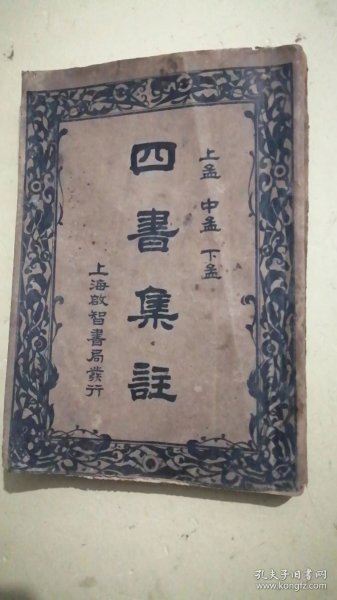 上孟 中孟 下孟
四書集註
上海啟智書局發行
孔夫子旧书网
www.kongfz.com